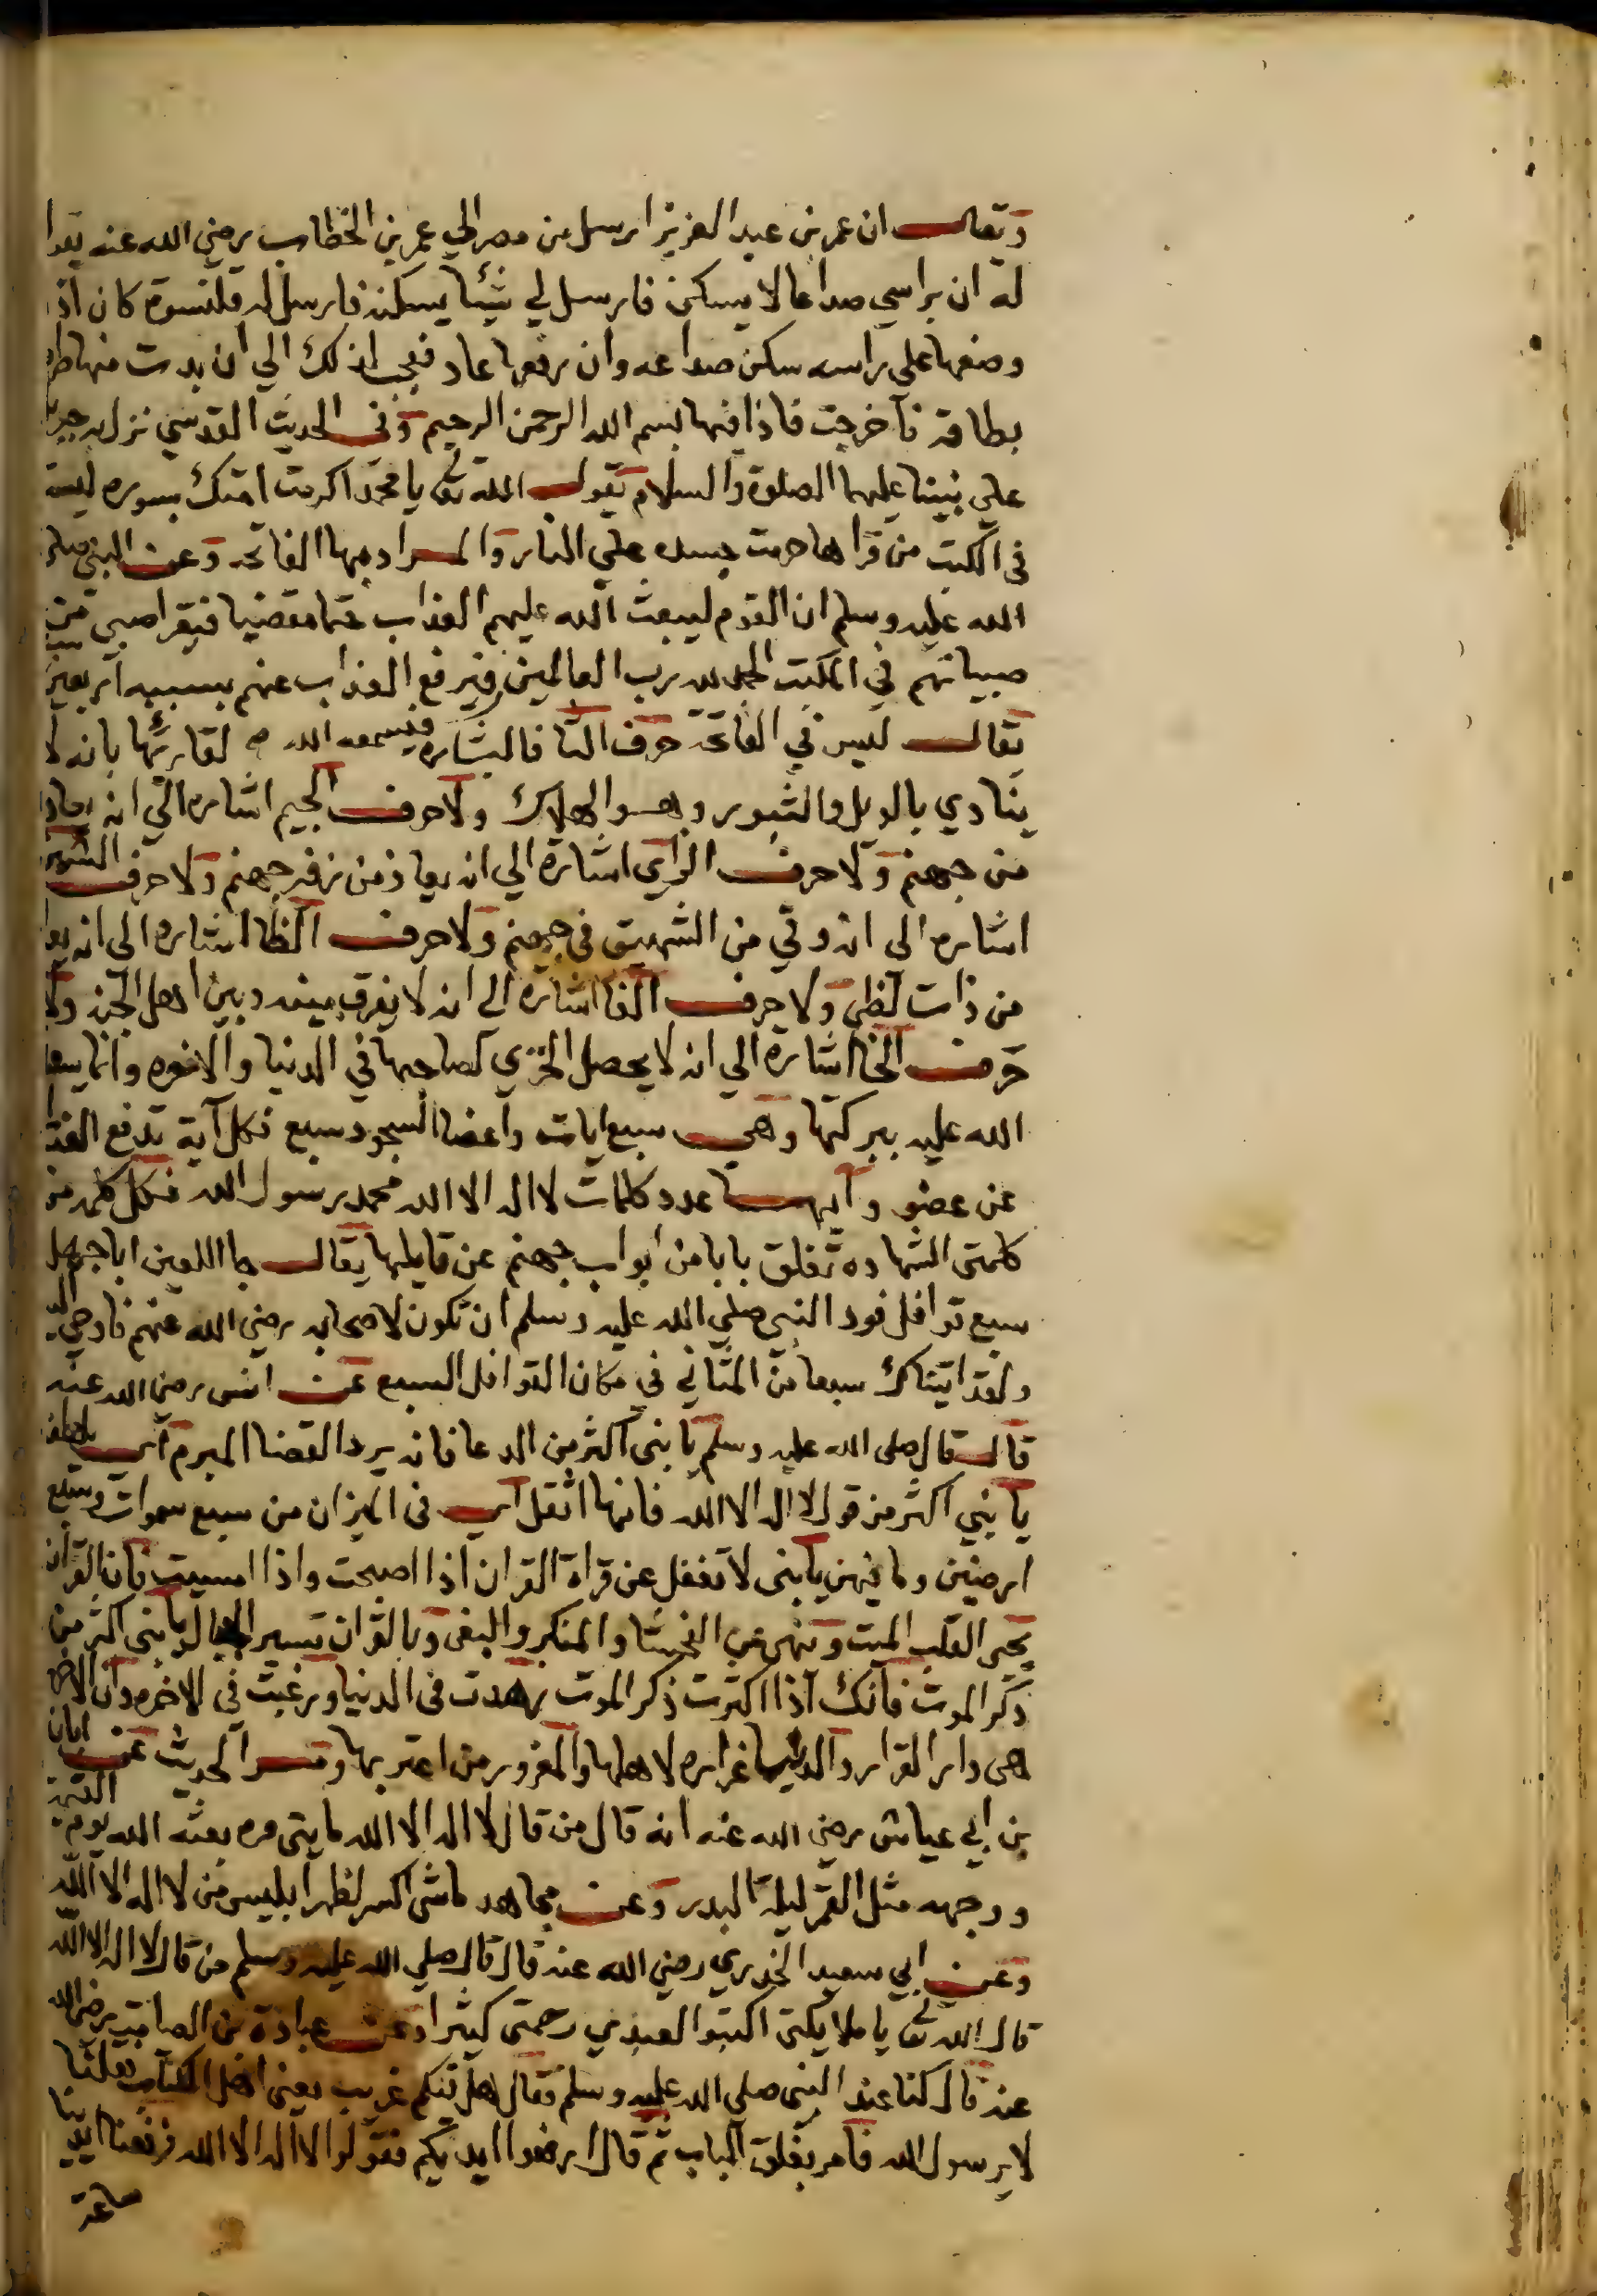 ويقال ان عمر بن عبد العزيز ارسل من مصر الي عمر بن الخطاب رضي الله عنه يقول
له ان براسي صداعا لا يسكن فارسل لي شيئا يسكنه فارسل له قلنسوة كان اذا
وضعها علي راسه سكن صداعه وان رفعها عاد فعجب لذلك الي ان بدت منها
بطاقة فاخرجت فاذا فيها بسم الله الرحمن الرحيم وفي الحديث القدسي نزل به جبريل
علي نبينا عليهما الصلوة والسلام يقول الله تعا يا محمد اكرمت امتك بسوره ليست
في الكتب من قراها حرمت جسده علي النار والمراد بها الفاتحه وعن النبي صلي
الله عليه وسلم ان القوم ليبعث الله عليهم العذاب حتما مقضيا فيقرا صبي من
صبيانهم في المكتب الحمد لله رب العالمين فيسمعه الله فيرفع العذاب عنهم بسببه اربعين سنه
يقال ليس في الفاتحة حرف الثا فالبشاره لقارئها بانه لا
ينادي بالويل والثبور وهو الهلاك ولا حرف الجيم اشاره الي انه يعاذ
من جهنم ولا حرف الزاي اشارة الي انه يعاذ من زفر جهنم ولا حرف الشين
اشاره الي انه وقي من الشهيق في جهنم ولا حرف الظا اشاره الي انه
من ذات لظي ولا حرف الفا اشارة الي انه لا يفرق بينه وبين اهل الجنه ولا
حرف الخا اشارة الي انه لا يحصل الخزي لصاحبها في الدنيا والاخره وانما
الله عليه ببركتها وهي سبع ايات واعضا السجود سبع فكل آية تدفع العذاب
عن عضو وآيها عدد كلمات لا اله الا الله محمد رسول الله فكل كلمه من
كلمتي الشهاده تغلق بابا من ابواب جهنم عن قايلها يقال جا اللعين ابا جهل
سبع قوافل فود النبي صلي الله عليه وسلم ان تكون لاصحابه رضي الله عنهم فاوحي اليه
ولقد اتيناك سبعا من المثاني في مكان القوافل السبع عن انس رضي الله عنه
قال قال صلي الله عليه وسلم يا بني اكثر من الدعا فانه يرد القضا المبرم اي
يا بني اكثر من قول لا اله الا الله فانها اثقل اي في الميزان من سبع سموات وسبع
ارضين وما فيهن يا بني لا تغفل عن قراة القران اذا اصبحت واذا امسيت فان القرآن
يحيي القلب الميت وينهي عن الفحشا والمنكر والبغي وبالقران تسير الجبال يا بني اكثر من
ذكر الموت فانك اذا اكثرت ذكر الموت زهدت في الدنيا ورغبت في الاخره وان الاخره
هي دار القرار والدنيا غراره لاهلها والمغرور من اغتر بها ومر الحديث عن ابان
بن ابي عياش رضي الله عنه انه قال من قال لا اله الا الله مايتي مره بعثه الله يوم القيمة
ووجهه مثل القمر ليلة البدر وعن مجاهد ما شي اكسر لظهر ابليس من لا اله الا الله
وعن ابي سعيد الخدري رضي الله عنه قال قال صلي الله عليه وسلم من قال لا اله الا الله
قال الله تعا يا ملايكتي اكتبوا لعبدي رحمتي كثيرا وعن عبادة بن الصامت رضي الله
عنه قال كنا عند النبي صلي الله عليه وسلم فقال هل فيكم غريب يعني اهل الكتاب فقلنا
لا يرسول الله فامر بغلق الباب ثم قال ارفعوا ايديكم فقولوا لا اله الا الله فرفعنا ايدينا
ساعة